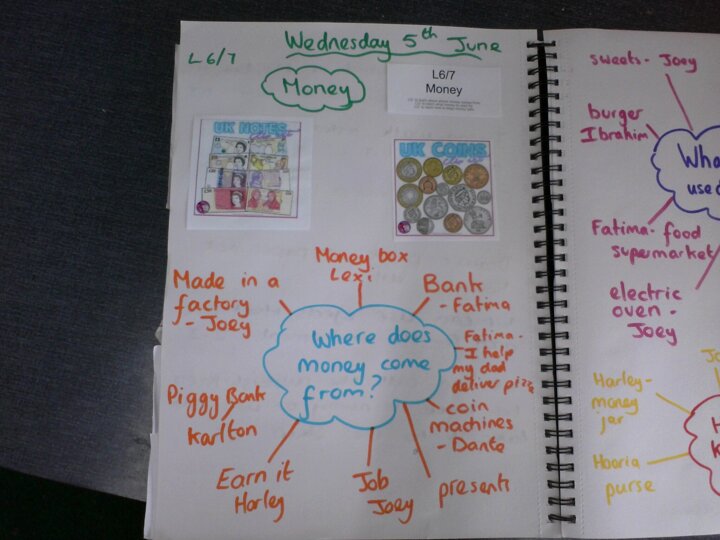 Wednesday 5th June
L6/7
Money
L6/7
Money
UK NOTES
UK COINS
Where does
money come
from?
Money box
Lexi
Bank
- Fatima
Fatima-
I help
my dad
deliver pizza
coin
machines
- Dante
presents
Job
Joey
Earn it
Harley
Piggy Bank
Karlton
Made in a
factory
- Joey
sweets - Joey
burger
Ibrahim
Fatima- food
supermarket
electric
oven -
Joey
Harley-
money
jar
Hooria
purse